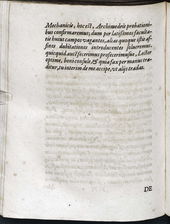 Mechanicis, hocest, Archimedeis probationi-
bus confirmaremus; dum per latissimos faculta-
tis huius campos vagantes, alias quoque istis af-
fines dubitationes introducentes solueremus,
quicquid aut fecerimus profecerimusue. Lector
optime, boni consule, & quia fax per manus tra-
ditur, tu interim de me accipe, vt alijs tradas.
DE